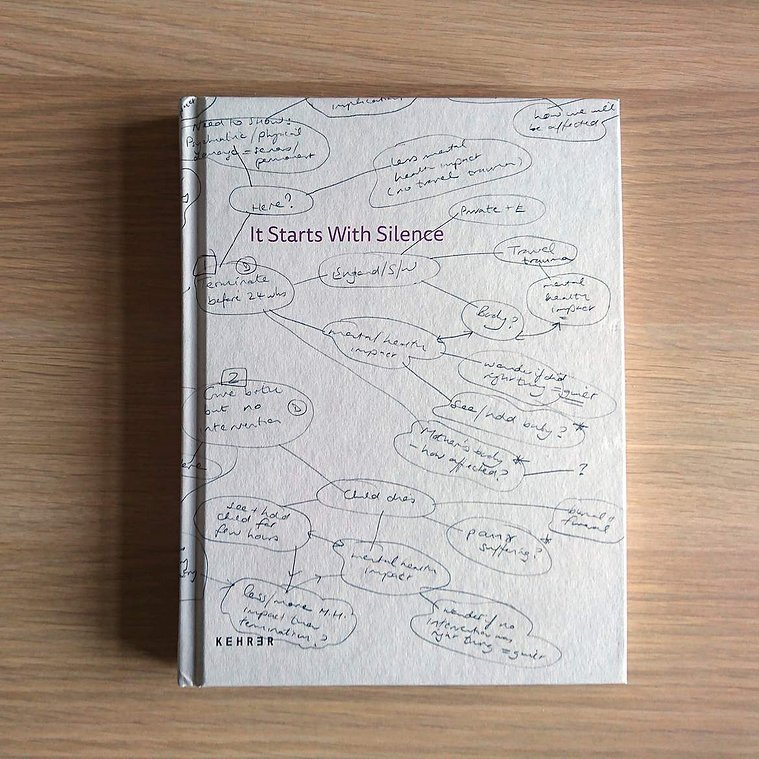 implication
how we will
be affected
Need to show:
Psychiatric / physical
damage = serious/
permanent
less mental
health impact
(no travel trauma)
Here?
Private + E
It Starts With Silence
Travel
trauma
1
England/S/W
Terminate
before 24 wks
mental
health
impact
=
Body?
mental health
impact
wonder if did
right thing = guilt
2
Give birth
but no
intervention
See/hold baby? *
Mother's body *
- how affected?
?
Child dies
see + hold
child for
few hours
burial +
funeral
pain +
suffering?
*
mental health
impact
less/more M.H.
impact than
termination?
wonder if no
intervention was
right thing = guilt
KEHRER